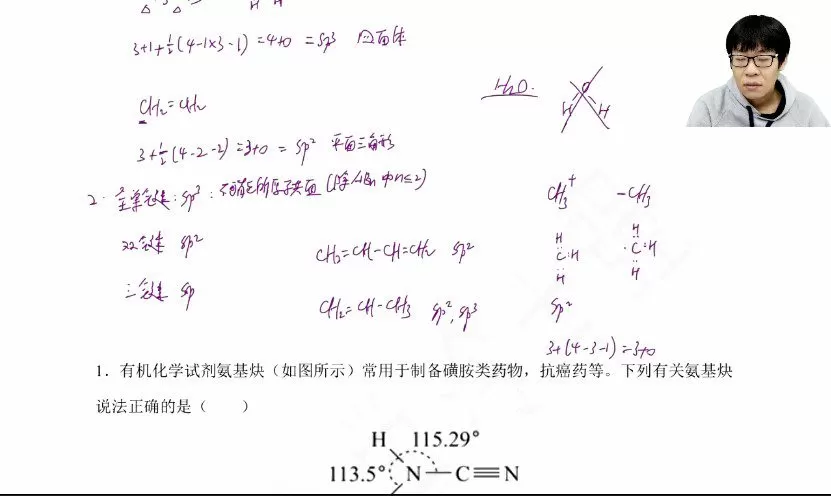 H H
3+1+½(4-1×3-1)=4+0=sp³ 四面体
H₂O.
O
H H
CH₂=CH₂
3+½(4-2-2)=3+0=sp² 平面三角形
2. 全单键:sp³:不可能所有原子共面(除ABn中n≤2)
CH₃⁺ -CH₃
双键 sp²
CH₂=CH-CH=CH₂ sp²
H H
C:H ·C:H
H H
三键 sp
CH₂=CH-CH₃ sp², sp³
sp²
3+(4-3-1)=3+0
1. 有机化学试剂氨基炔(如图所示)常用于制备磺胺类药物,抗癌药等。下列有关氨基炔
说法正确的是( )
H 115.29°
113.5° N—C≡N